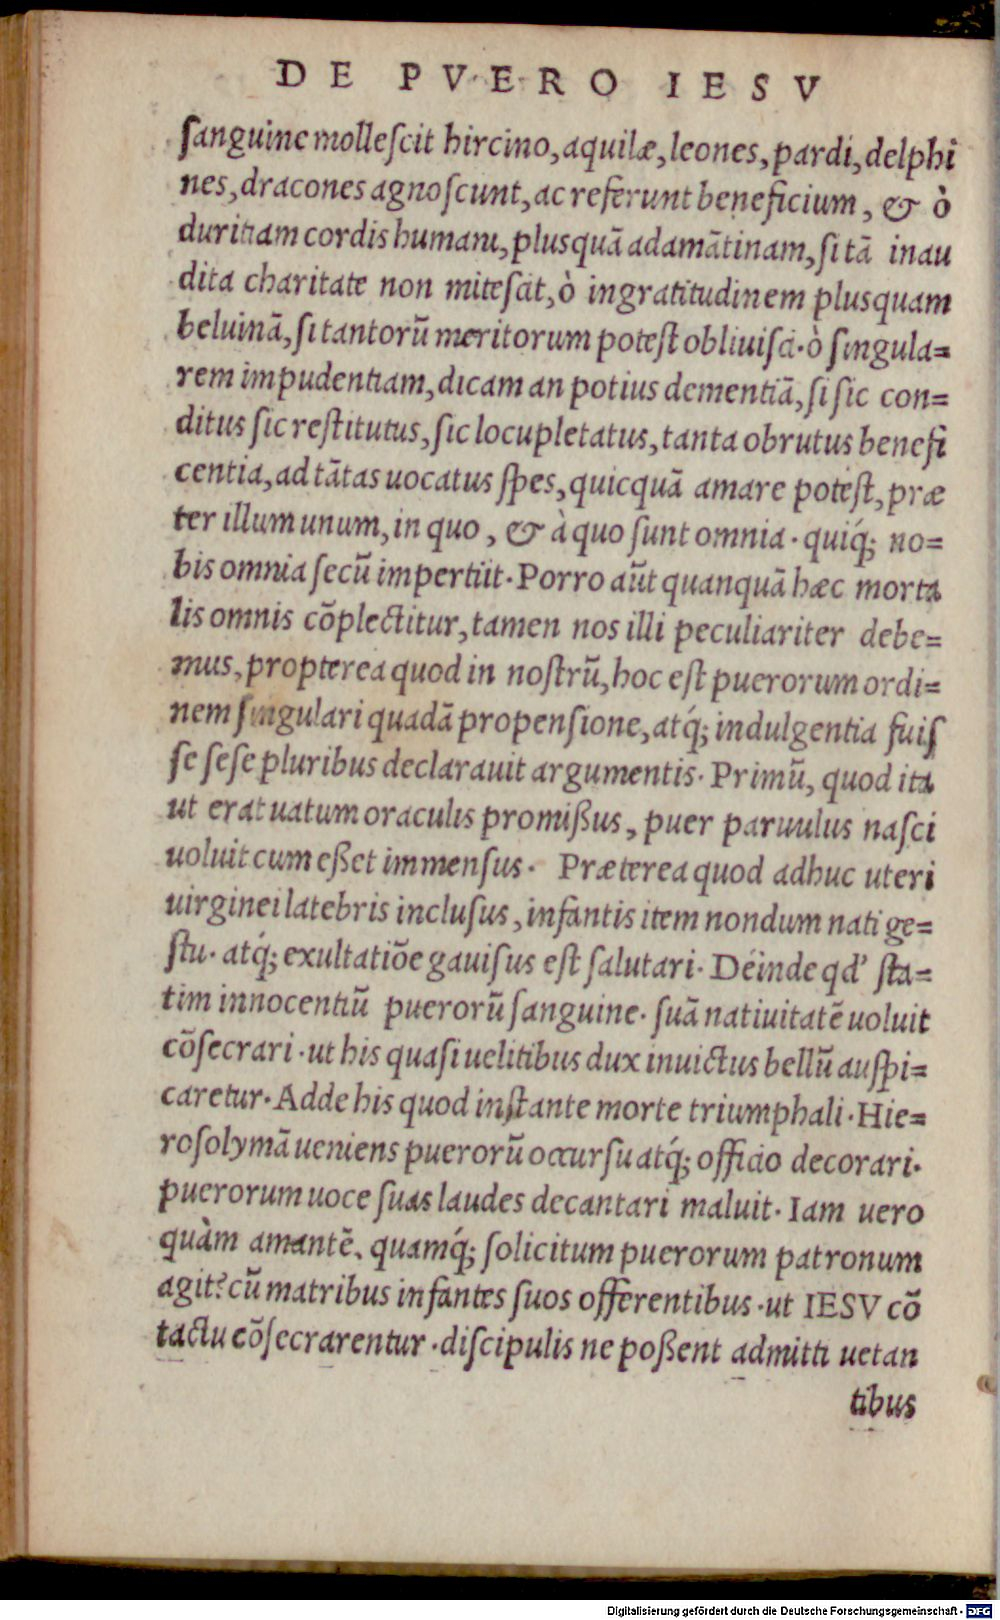 DE PV·E·RO IESV
ſanguine molleſcit hircino, aquilæ, leones, pardi, delphi
nes, dracones agnoſcunt, ac referunt beneficium, & ò
duritiam cordis humani, plusquã adamãtinam, ſi tã inau
dita charitate non miteſcit, ò ingratitudinem plusquam
beluinã, ſi tantorũ meritorum poteſt obliuiſci· ò ſingula=
rem impudentiam, dicam an potius dementiã, ſi ſic con=
ditus ſic reſtitutus, ſic locupletatus, tanta obrutus benefi
centia, ad tãtas uocatus ſpes, quicquã amare poteſt, præ
ter illum unum, in quo, & à quo ſunt omnia· quiq́; no=
bis omnia ſecũ impertiit· Porro aũt quanquã hæc morta
lis omnis cõplectitur, tamen nos illi peculiariter debe=
mus, propterea quod in noſtrũ, hoc eſt puerorum ordi=
nem ſingulari quadã propenſione, atq́; indulgentia fuiſ
ſe ſeſe pluribus declarauit argumentis· Primũ, quod ita
ut erat uatum oraculis promißus, puer paruulus naſci
uoluit cum eßet immenſus· Præterea quod adhuc uteri
uirginei latebris incluſus, infantis item nondum nati ge=
ſtu· atq́; exultatiõe gauiſus eſt ſalutari· Deinde qd' ſta=
tim innocentiũ puerorũ ſanguine· ſuã natiuitatẽ uoluit
cõſecrari· ut his quaſi uelitibus dux inuictus bellũ auſpi=
caretur· Adde his quod inſtante morte triumphali· Hie=
roſolymã ueniens puerorũ occurſu atq́; officio decorari·
puerorum uoce ſuas laudes decantari maluit· Iam uero
quàm amantẽ, quamq́; ſolicitum puerorum patronum
agit? cũ matribus infantes ſuos offerentibus· ut IESV cõ
tactu cõſecrarentur· diſcipulis ne poßent admitti uetan
tibus
Digitalisierung gefördert durch die Deutsche Forschungsgemeinschaft - DFG